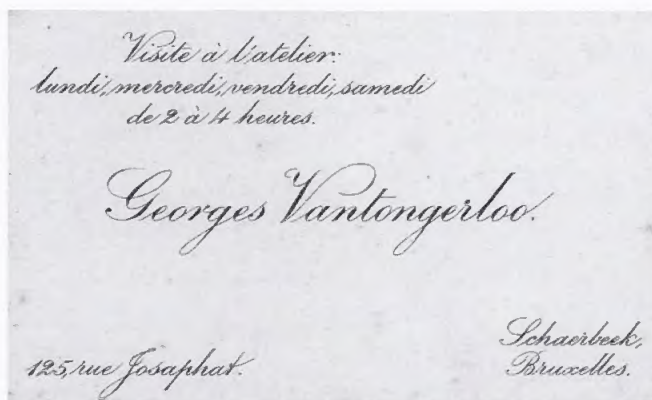 Visite à l'atelier:
lundi, mercredi, vendredi, samedi
de 2 à 4 heures.
Georges Vantongerloo.
125, rue Josaphat.
Schaerbeek,
Bruxelles.